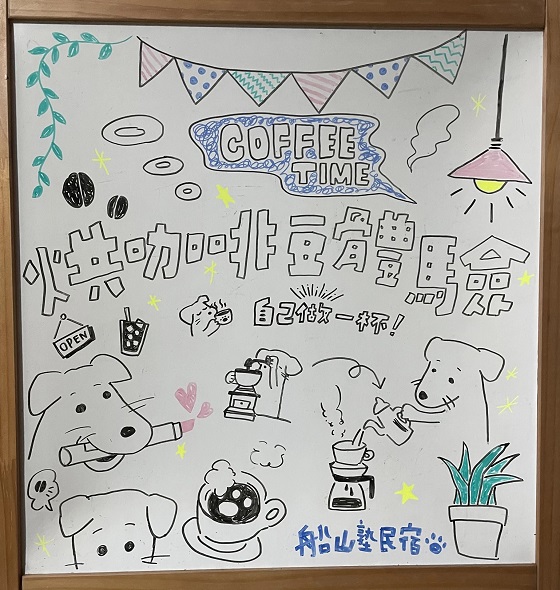 COFFEE
TIME
烘咖啡豆體驗
自己做一杯！
OPEN
船山塾民宿